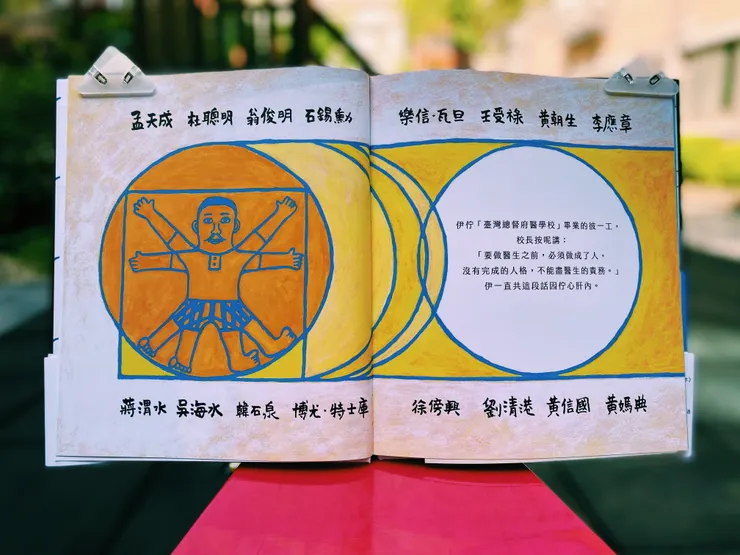 孟天成 杜聰明 翁俊明 石錫勳
樂信·瓦旦 王受祿 黃朝生 李應章
伊佇「臺灣總督府醫學校」畢業的彼一工，
校長按呢講：
「要做醫生之前，必須做成了人，
沒有完成的人格，不能盡醫生的責務。」
伊一直共這段話囥佇心肝內。
蔣渭水 吳海水 韓石泉 博尤·特士庫
徐傍興 劉清港 黃信國 黃媽典